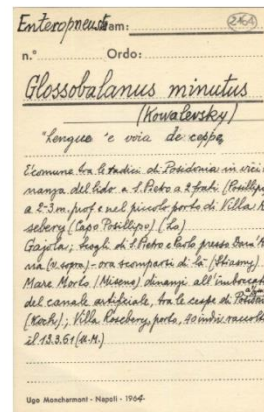 Enteropneusta Fam: 2164
n.° Ordo:
Glossobalanus minutus
(Kowalevsky)
"Lengue 'e voia de ceppe
È comune tra le radici di Posidonia in vici
nanza del lido a S. Pietro a 2 frati (Posillipo
a 2-3 m. prof e nel piccolo porto di Villa R
sebery (Capo Posillipo) (Lo)
Gajola; scogli di S. Pietro e Paolo presso
(v. sopra) - ora scomparsi di là (Stiasny)
Mare Morto (Miseno) dinanzi all'imboccat
del canale artificiale, tra le cespe di Posidon
(Koch); Villa Rosebery, porto, 40 indiv raccolt
il 13.3.61 (U.M.)
Ugo Moncharmont - Napoli - 1964